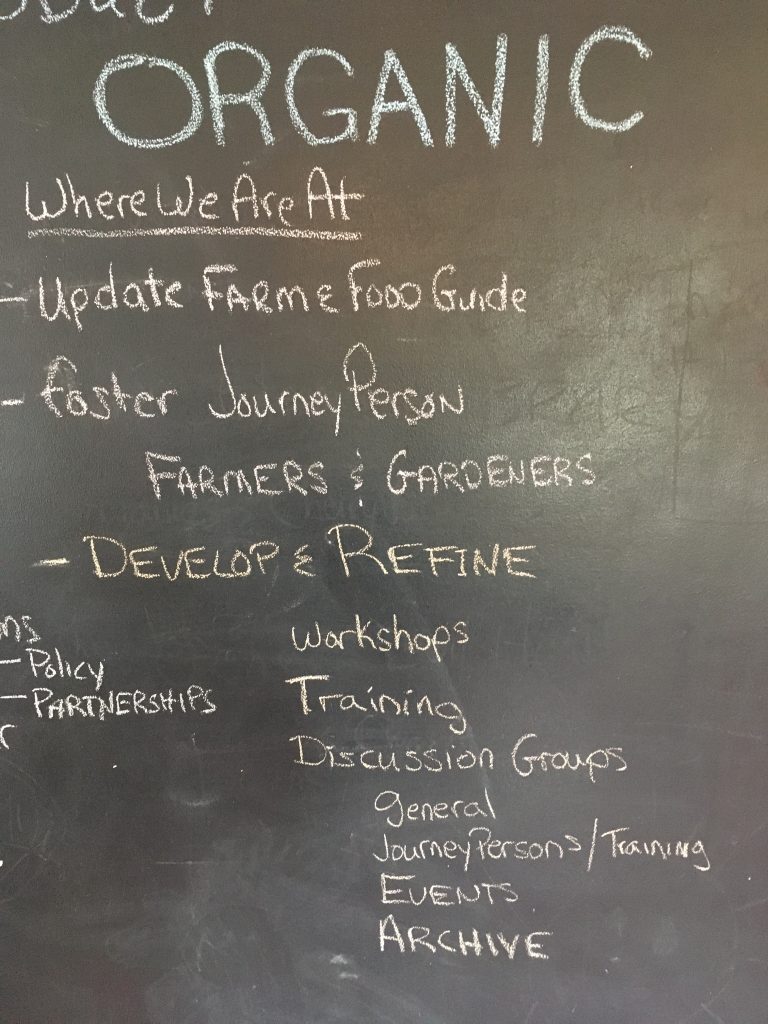 ORGANIC
Where We Are At
- Update FARM & FOOD Guide
- Foster JourneyPerson
FARMERS & GARDENERS
- DEVELOP & REFINE
Workshops
- Policy
- PARTNERSHIPS
Training
Discussion Groups
general
JourneyPersons/Training
EVENTS
ARCHIVE